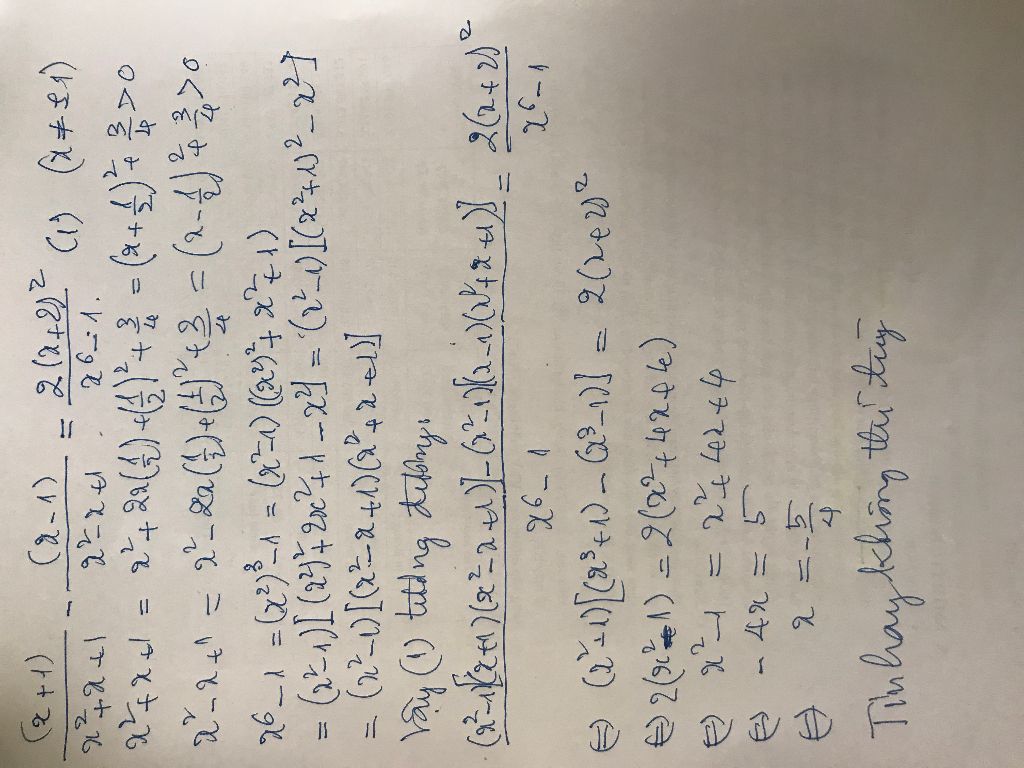 (x+1)/(x²+x+1) - (x-1)/(x²-x+1) = 2(x+2)²/(x⁶-1) (1) (x ≠ ±1)
x²+x+1 = x²+2x(1/2)+(1/2)²+3/4 = (x+1/2)²+3/4 > 0
x²-x+1 = x²-2x(1/2)+(1/2)²+3/4 = (x-1/2)²+3/4 > 0
x⁶-1 = (x²)³-1 = (x²-1)((x²)²+x²+1)
= (x²-1)[(x²)²+2x²+1-x²] = (x²-1)[(x²+1)²-x²]
= (x²-1)[(x²-x+1)(x²+x+1)]
Vậy (1) tương đương
(x²-1)[(x+1)(x²-x+1)]-(x²-1)[(x-1)(x²+x+1)]/(x⁶-1) = 2(x+2)²/(x⁶-1)
⇔ (x²-1)[(x³+1)-(x³-1)] = 2(x+2)²
⇔ 2(x²-1) = 2(x²+4x+4)
⇔ x²-1 = x²+4x+4
⇔ -4x = 5
⇔ x = -5/4
Tin hay không thì tùy